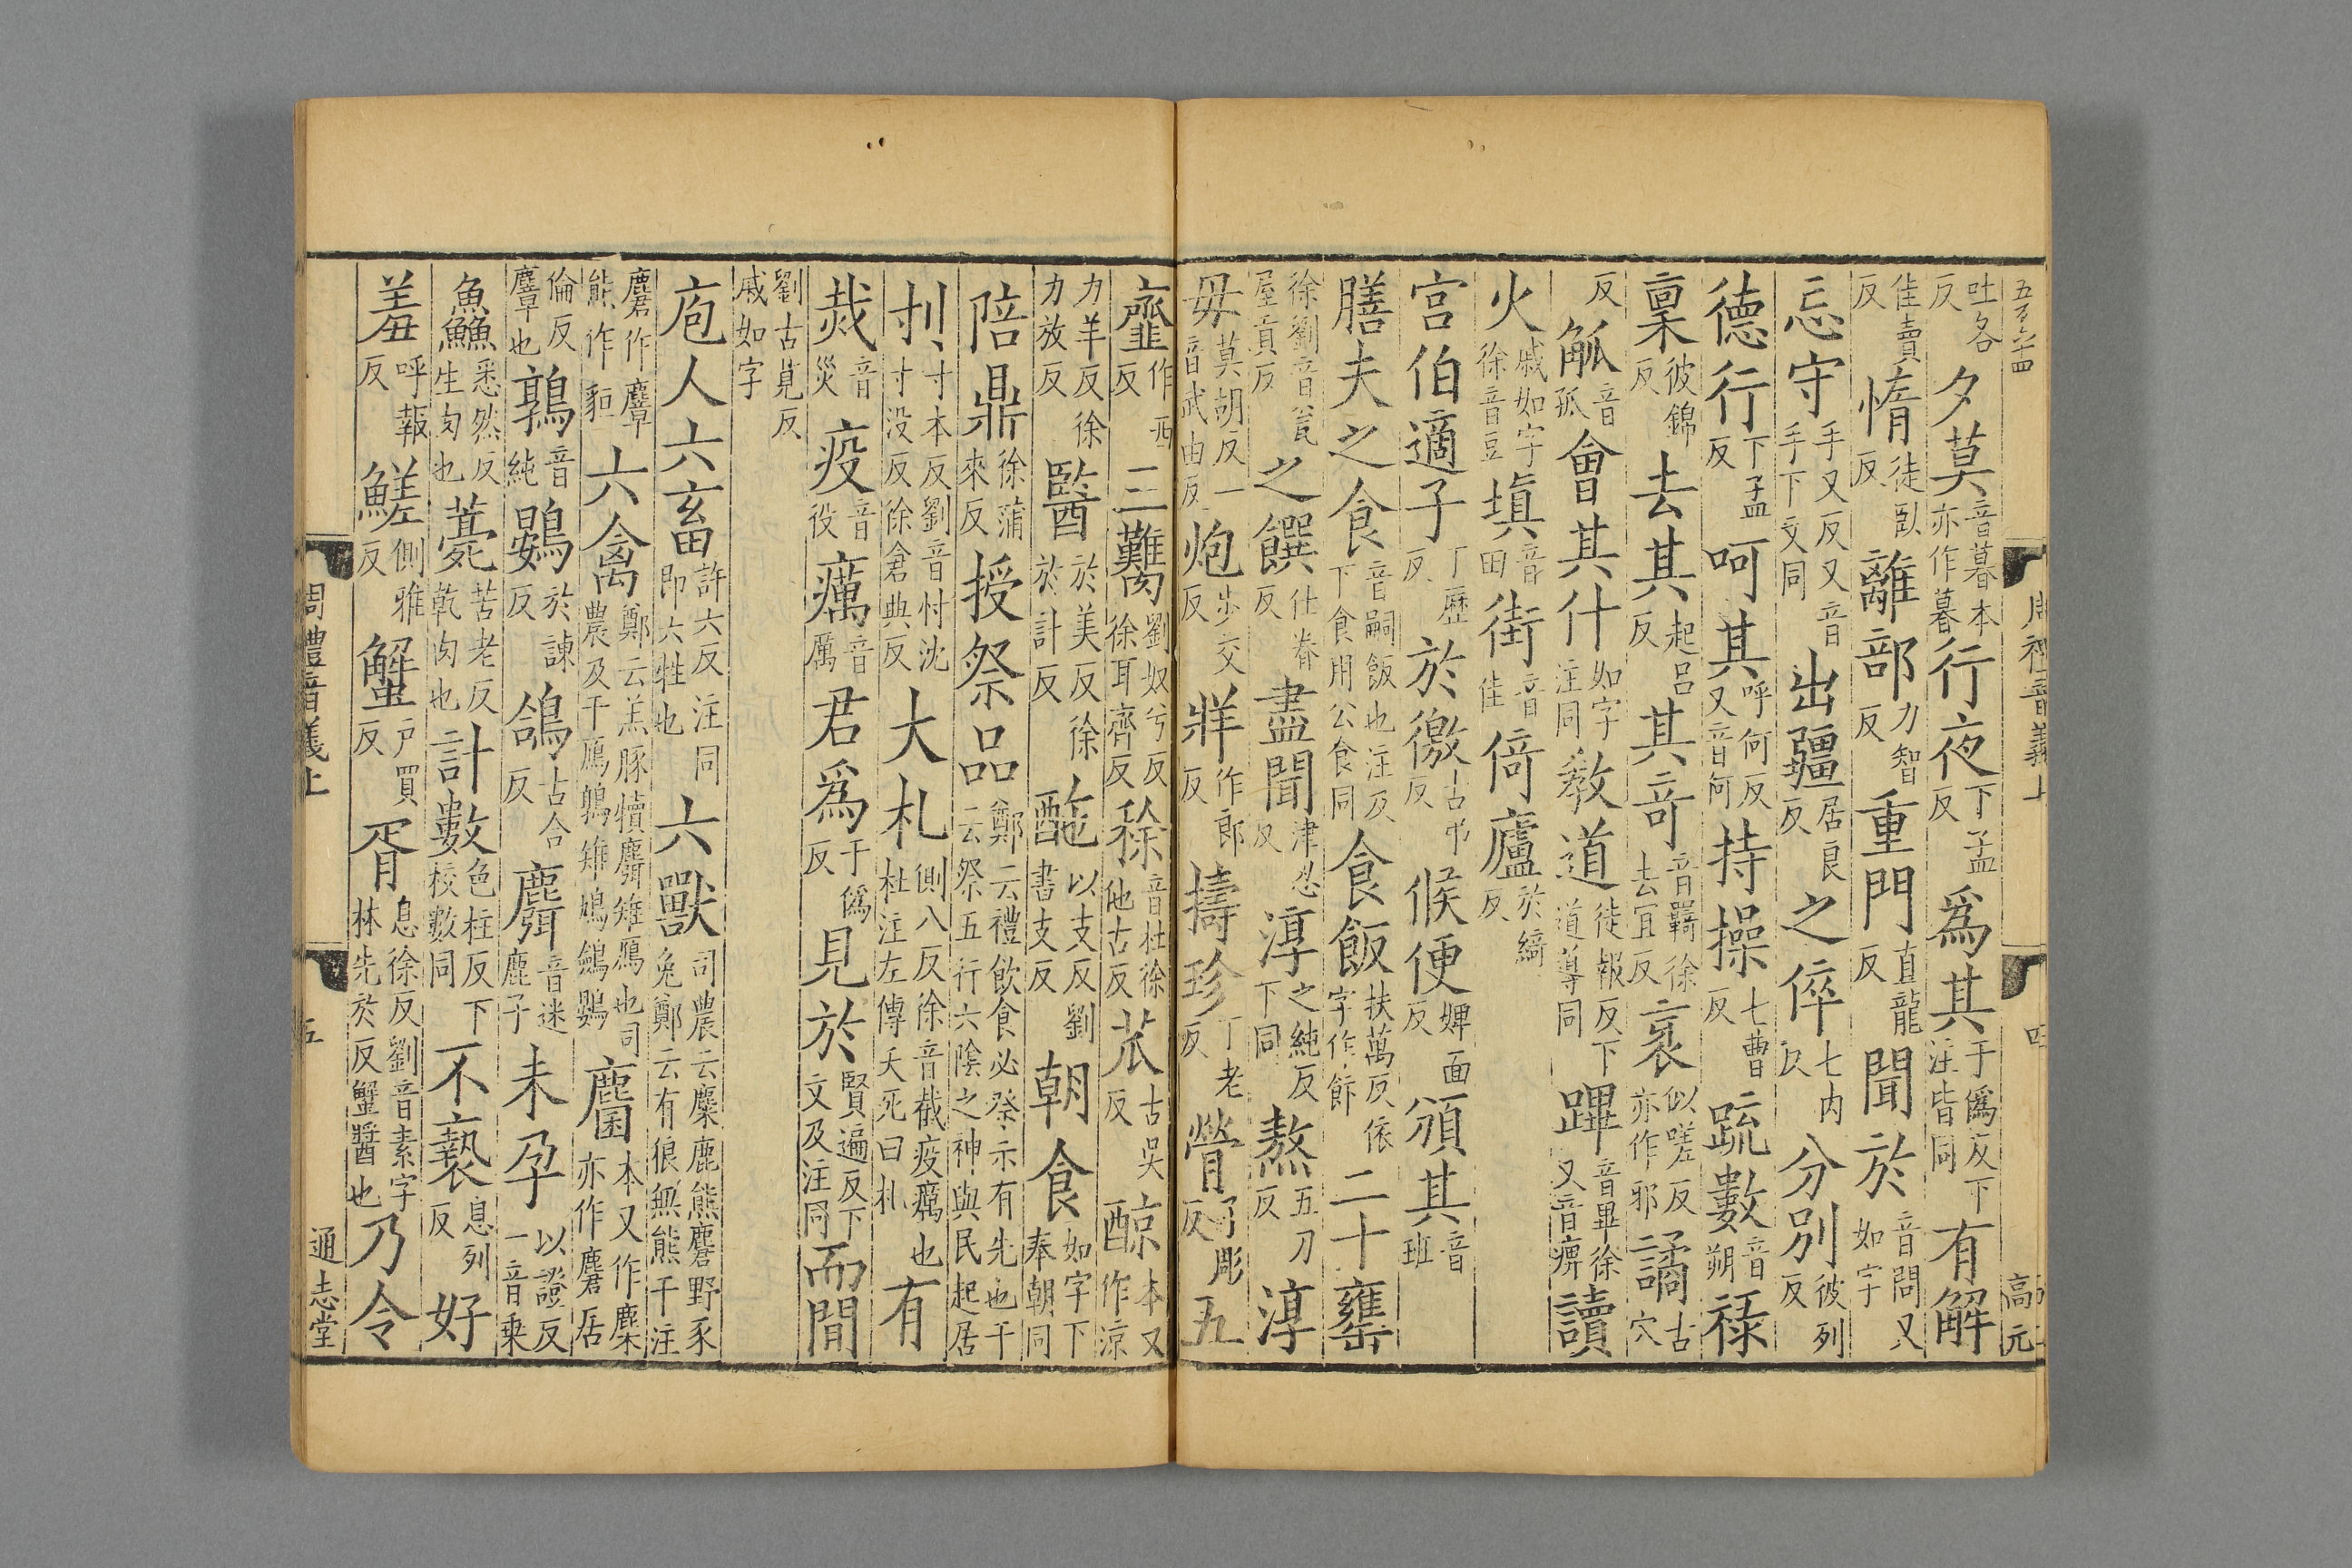 吐各反夕莫音暮本亦作暮行夜下孟反爲其于僞反下注皆同有解
佳賣反惰徒臥反離部力智反重門直龍反聞於音問又如字
忘守手又反又音手下文同出疆居良反之倅七内反分別彼列反
德行下孟反呵其呼何反又音何持操七曹反疏數音朔祿
稟彼錦反去其起呂反其竒音羇徐去宜反衺似嗟反亦作邪譎古穴
反觚音孤會其什如字注同敎道徒報反下道導同蹕音畢徐又音痺讀
火戚如字徐音豆塡音田街音佳倚廬於綺反
宫伯適子丁歷反於徼古弔反候便婢面反頒其音班
膳夫之食音嗣飯也注及下食用公食同食飯扶萬反依字作飰二十罋
徐劉音瓮屋貢反之饌仕眷反盡聞津忍反淳之純反下同熬五刀反淳
毋莫胡反一音武由反炮步交反牂作郎反擣珍丁老反膋了彫反五
齏作西反三臡劉奴兮反徐耳齊反稌音杜徐他古反苽古吳反䣼本又作涼
力羊反徐力放反醫於美反徐於計反酏以支反劉書支反朝食如字下奉朝同
陪鼎徐蒲來反授祭品鄭云禮飲食必祭示有先也干云祭五行六陰之神與民起居
刌寸本反劉音忖沈寸没反徐倉典反大札側八反徐音截疫癘也杜注左傳夭死曰札有
烖音災疫音役癘音厲君爲于僞反見於賢遍反下文及注同而閒
劉古莧反戚如字
庖人六畜許六反注同即六牲也六獸司農云麋鹿熊麕野豕兔鄭云有狼無熊干注
麕作麞熊作貆六禽鄭云羔豚犢麛雉鴈也司農及干鴈鶉雉鳩鴿鷃麕本又作麇亦作麏居
倫反麞也鶉音純鷃於諫反鴿古合反麛音迷鹿子未孕以證反一音乗
魚鱻悉然反生肉也薧苦老反乾肉也計數色柱反下校數同不褻息列反好
羞呼報反䱹側雅反蟹户買反胥息徐反劉音素字林先於反蟹醬也乃令
周禮音義上
四
高元
周禮音義上
五
通志堂